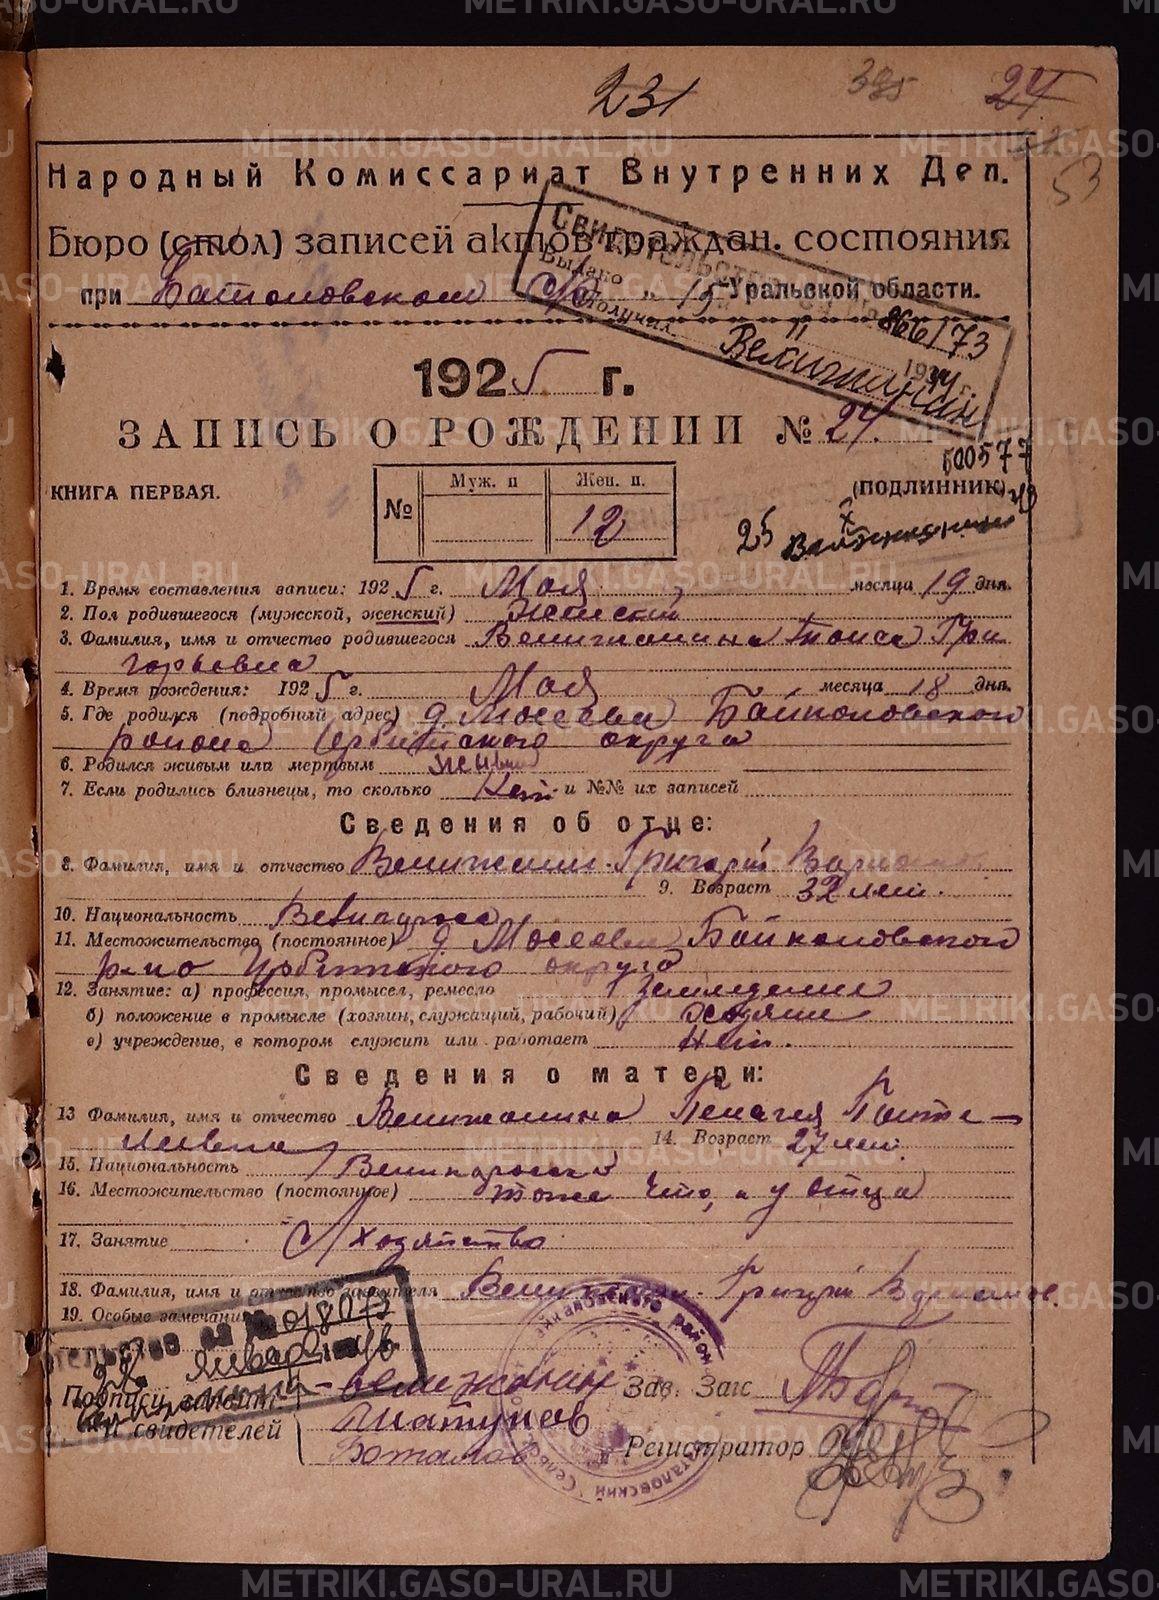 231
24
53
Народный Комиссариат Внутренних Дел.
Бюро (стол) записей актов граждан. состояния
при Баталовском с/с Уральской области.
Свидетельство
Выдано
1925 г.
Велижанин
ЗАПИСЬ О РОЖДЕНИИ № 24.
600577
КНИГА ПЕРВАЯ.
(ПОДЛИННИК)
№ Муж. п Жен. п.
12
25
1. Время составления записи: 1925 г. Мая месяца 19 дня.
2. Пол родившегося (мужской, женский) Женский
3. Фамилия, имя и отчество родившегося Велижанина Таиса Гри
горьевна
4. Время рождения: 1925 г. Мая месяца 18 дня.
5. Где родился (подробный адрес) д. Мосеева Байкаловского
района Ирбитского округа
6. Родился живым или мертвым живым
7. Если родились близнецы, то сколько Нет и №№ их записей
Сведения об отце:
8. Фамилия, имя и отчество Велижанин Григорий
9. Возраст 32 лет.
10. Национальность
11. Местожительство (постоянное) д Мосеева Байкаловского
р-на Ирбитского округа
12. Занятие: а) профессия, промысел, ремесло Земледелие
б) положение в промысле (хозяин, служащий, рабочий) Хозяин
в) учреждение, в котором служит или работает Нет.
Сведения о матери:
13 Фамилия, имя и отчество Велижанина Пелагея Панте-
левна
14. Возраст 27 лет.
15. Национальность Великоросска
16. Местожительство (постоянное) тоже что, и у отца
17. Занятие С/хозяйство
18. Фамилия, имя и отчество заявителя Велижанин Григорий
19. Особые замечания
018073
января
Подписи: заявит. Велижанин
и свидетелей
Зав. Загс
Регистратор
METRIKI.GASO-URAL.RU